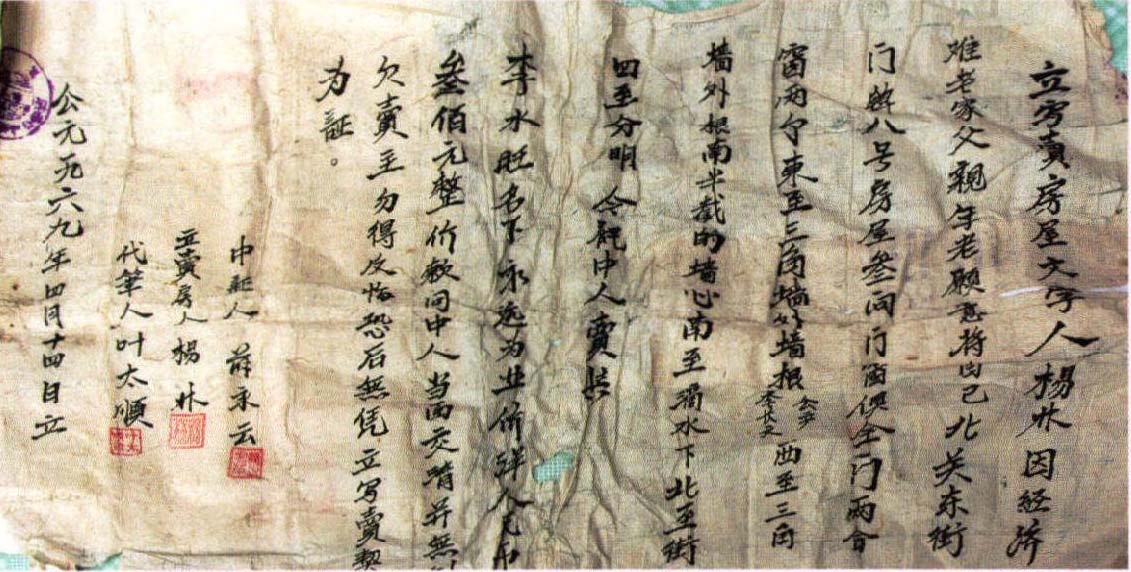 立写卖房屋文字人 杨林 因经济
难老家父亲年老愿意将自己北关东街
门牌八号房屋叁间门窗俱全门两合
窗两个东至三角墙外墙根 西至三角
墙外根南半截的墙心南至滴水下北至街
四至分明 今凭中人卖与
李水旺名下永远为业价洋人民币
叁佰元整价款同中人当面交清并无
欠卖主勿得反悔恐后無凭立写卖契
为証。
中証人 薛来云
立卖房人 杨林
代筆人 叶太順
公元一九六九年四月十四日立